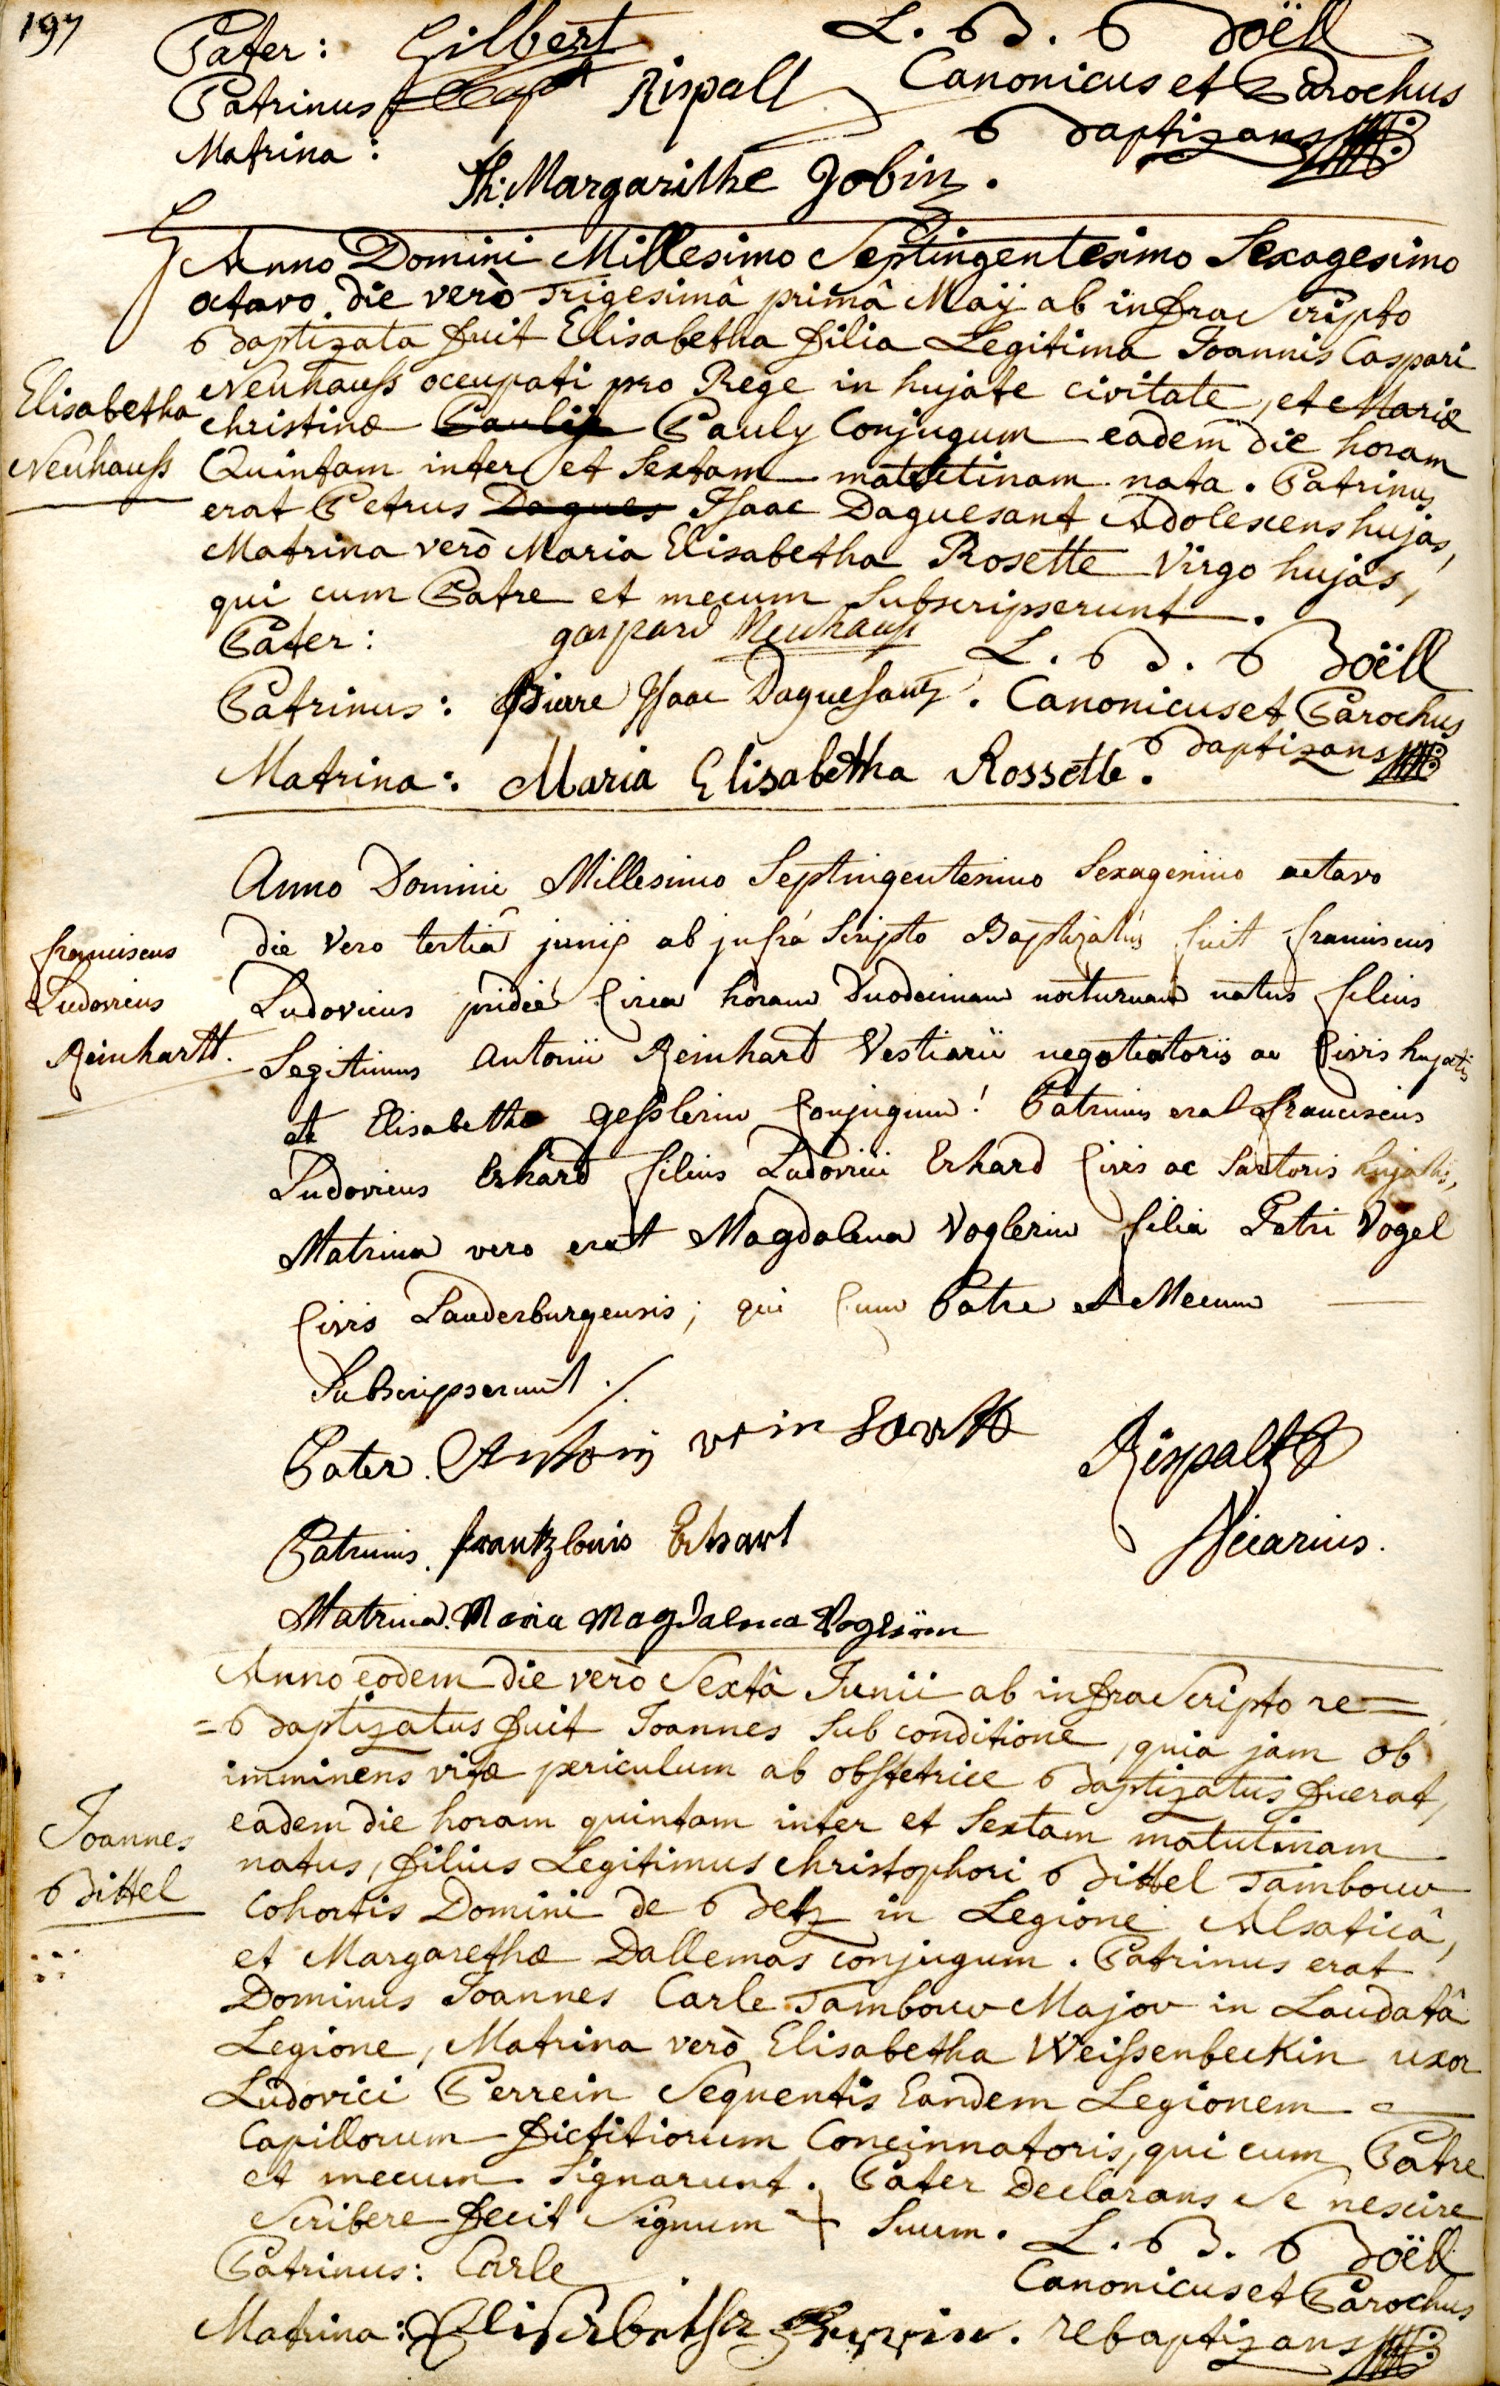 197
Pater: Gilbert L. B. Böell
Patrinus: Rispall Canonicus et Parochus
Matrina: Baptizans
Th: Margarithe Jobin.
Anno Domini Millesimo Septingentesimo Sexagesimo
octavo, die verò Trigesimâ primâ Maÿ ab infra scripto
Baptizata fuit Elisabetha filia Legitima Joannis Caspari
Elisabetha
Neuhauss
Neuhauss occupati pro Rege in hujate civitate, et Mariæ
Christinæ Paulÿ Pauly Conjugum eadem die horam
Quintam inter et Sextam matutinam nata. Patrinus
erat Petrus Dagues Isaac Daguesant Adolescens hujas,
Matrina verò Maria Elisabetha Rosette Virgo hujas,
qui cum Patre et mecum Subscripserunt.
Pater: gaspard Neuhauss L. B. Böell
Patrinus: Pierre Isaac Daguesant. Canonicus et Parochus
Matrina: Maria Elisabetha Rossette. Baptizans
Anno Domini Millesimo Septingentesimo Sexagesimo actavo
franciscus
Ludovicus
Reinhartt.
die Vero tertiâ junij ab jnfrá Scripto Baptizatus fuit franciscus
Ludovicus pridie Circa horam Duodecimam nocturnam natus filius
Legitimus Antonii Reinhard Vestiarii negotiatoris ac Civis hujatis
et Elisabetha gesslerin Conjugum! Patrinus erat franciscus
Ludovicus Erhard filius Ludovici Erhard Civis ac Sartoris hujatis,
Matrina vero erat Magdalena Voglerin filia Petri Vogel
Civis Lauderburgensis; qui Cum Patre et Mecum
Subscripserunt ./.
Pater. Antonj reinhartt Rispalt
Patrinus. frantz louis Erhart Vicarius.
Matrina. Maria Magdalena Voglerin
Anno eodem die verò Sextâ Junii ab infra Scripto re=
=Baptizatus fuit Joannes Sub conditione, quia jam ob
imminens vitæ periculum ab obstetrice Baptizatus fuerat,
Joannes
Bittel
eadem die horam quintam inter et Sextam matutinam
natus, filius Legitimus Christophori Bittel Tambour
Cohortis Domini de Betz in Legione Alsaticâ,
et Margarethæ Dallemas conjugum. Patrinus erat
Dominus Joannes Carle Tambour Major in Laudatâ
Legione, Matrina verò Elisabetha Weissenbeckin uxor
Ludovici Perrein Sequentis Eandem Legionem
Capillorum fictitiorum Concinnatoris, qui cum Patre
et mecum Signarunt. Pater Declarans Se nescire
Scribere fecit Signum + Suum. L. B. Böell
Patrinus: Carle Canonicus et Parochus
Matrina: Elisabetha Perrin. rebaptizans